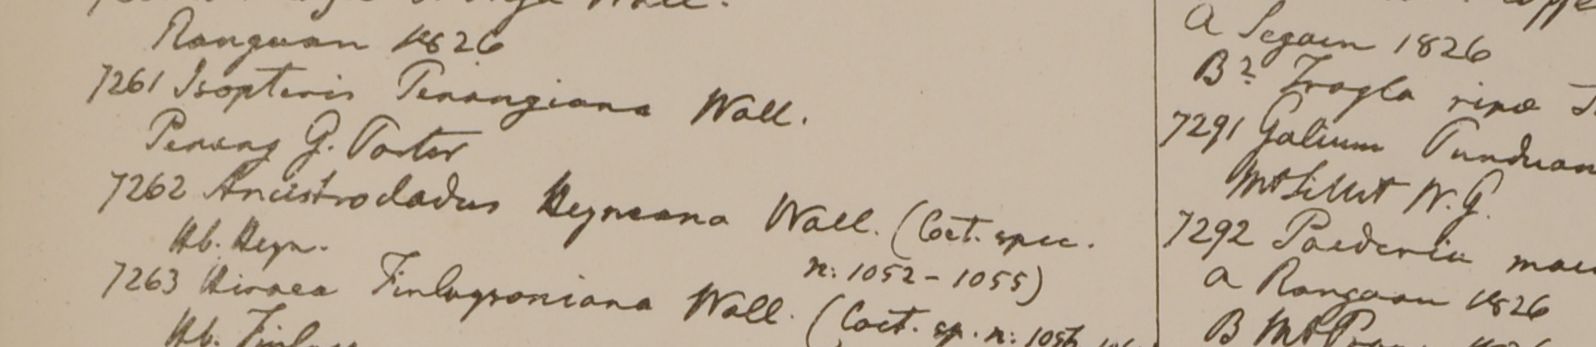 Wall.
Ranguan 1826
7261 Isopteris Penangiana Wall.
Penang G. Porter
7262 Ancistrocladus Heyneana Wall. (Coct. spec.
Hb. Heyn. n: 1052 - 1055)
7263 Hiraea Finlaysoniana Wall. (Coct. sp. n: 1056
Hb.
a Segaen 1826
B? ripae
7291 Galium
Mt Sillet W. G.
7292 Paederia
a Rangoon 1826
B Mt